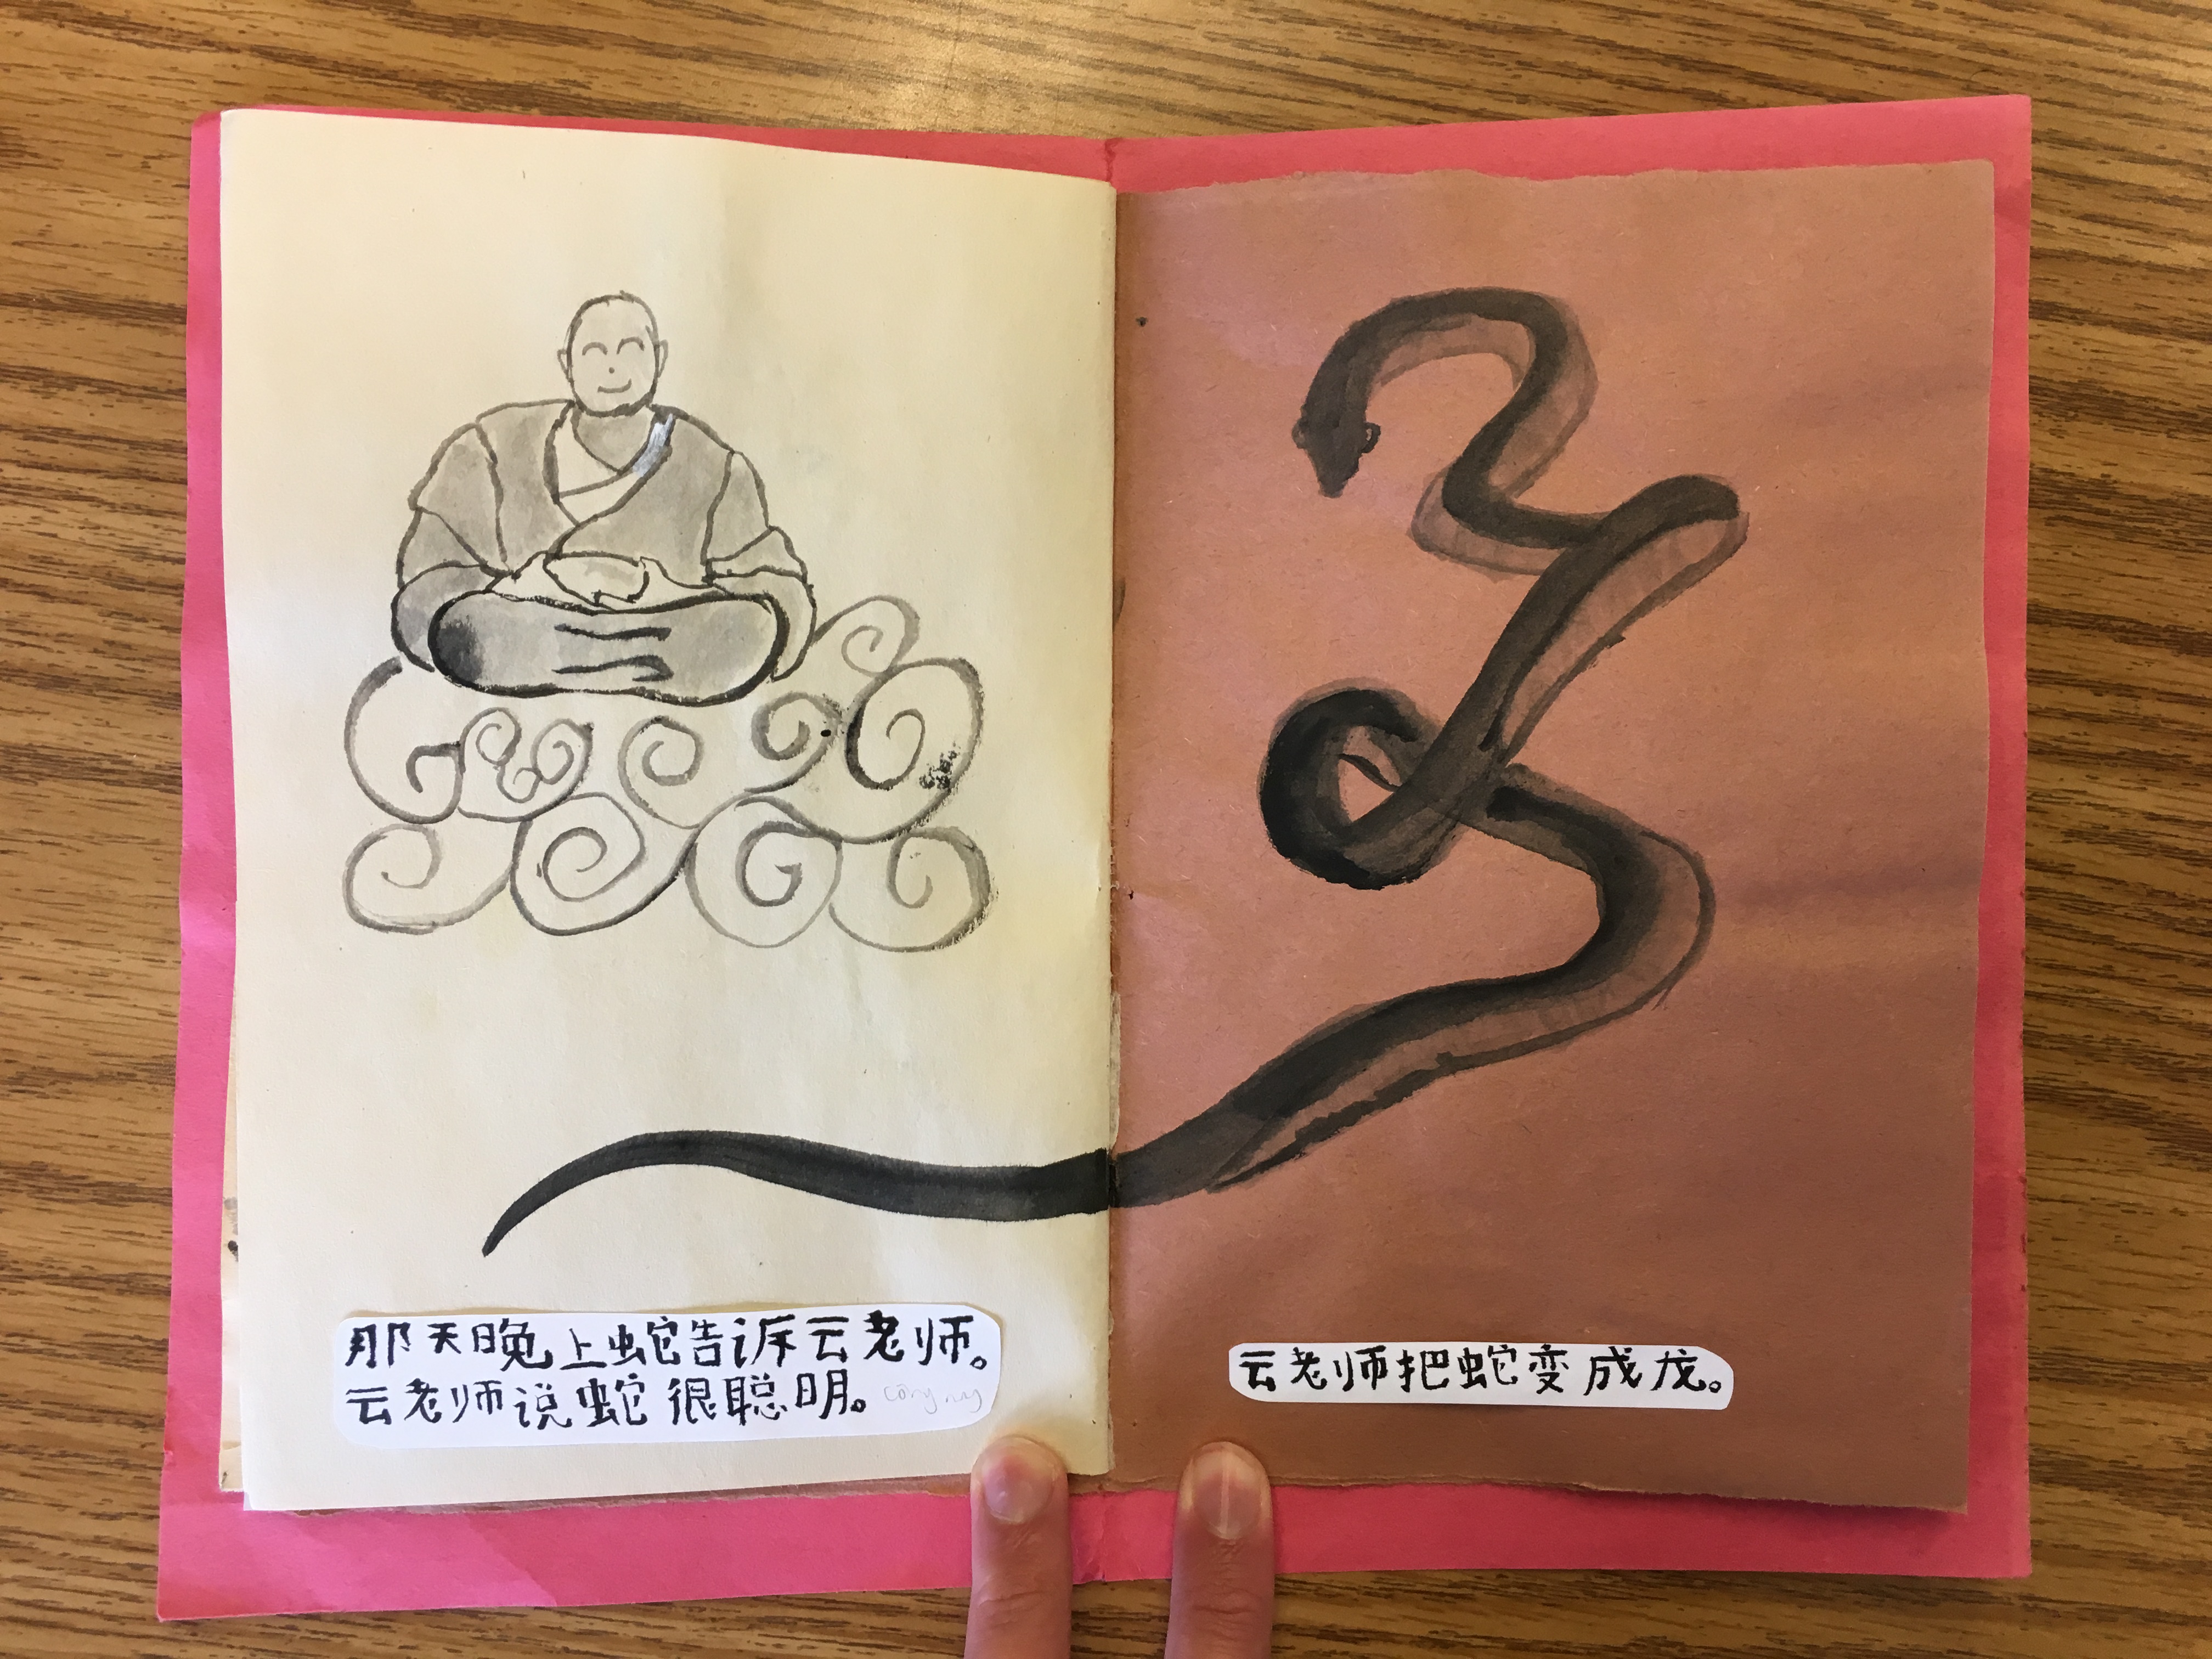 那天晚上蛇告诉云老师。
云老师说蛇很聪明。
云老师把蛇变成龙。